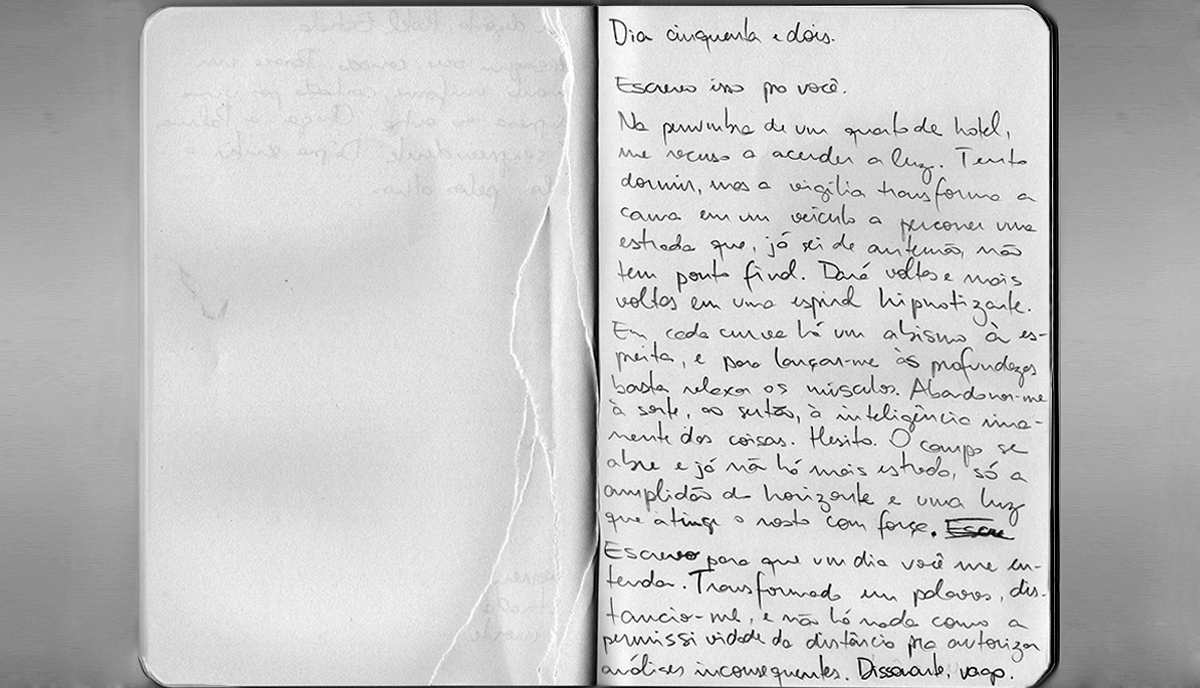 Dia cinquenta e dois.
Escrevo isso pra você.
Na penumbra de um quarto de hotel,
me recuso a acender a luz. Tento
dormir, mas a vigília transforma a
cama em um veículo a percorrer uma
estrada que, já sei de antemão, não
tem ponto final. Dará voltas e mais
voltas em uma espiral hipnotizante.
Em cada curva há um abismo à es-
preita, e para lançar-me às profundezas
basta relaxar os músculos. Abandonar-me
à sorte, ao sertão, à inteligência ima-
nente das coisas. Hesito. O campo se
abre e já não há mais estrada, só a
amplidão do horizonte e uma luz
que atinge o rosto com força. Escre
Escrevo para que um dia você me en-
tenda. Transformado em palavras, dis-
tancio-me, e não há nada como a
permissividade da distância pra autorizar
análises inconsequentes. Dissonante, vago.